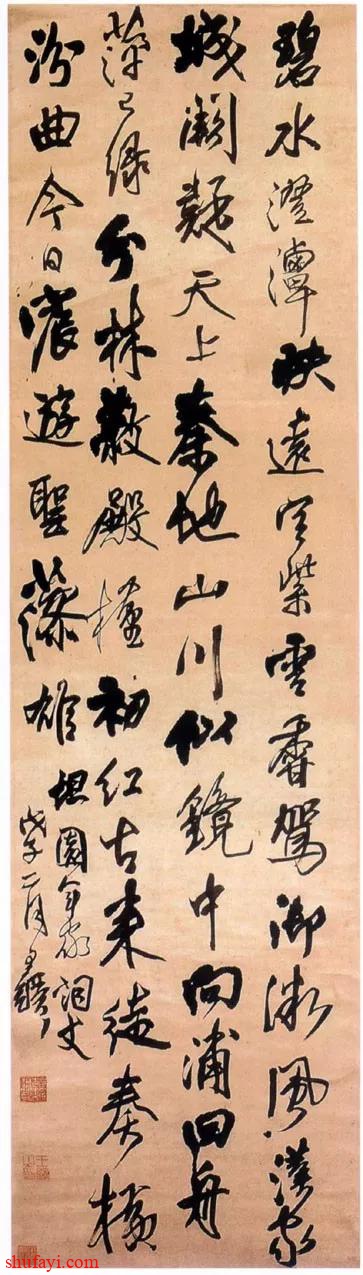 碧水澄潭映遠空紫雲香駕御微風漢家
城闕疑天上秦地山川似鏡中向浦回舟
萍已緑分林蔽殿槿初紅古來徒奏橫
汾曲今日宸遊聖藻雄 坦園年家詞丈
戊子二月王鐸
shufayi.com